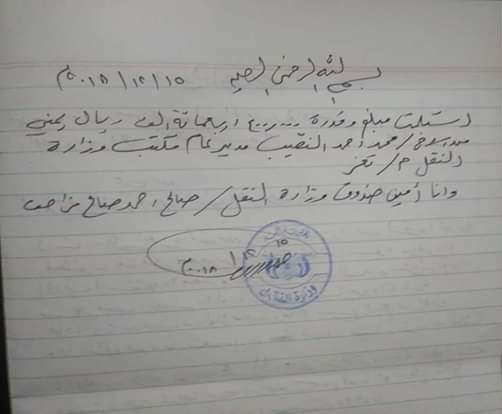 بسم الله الرحمن الرحيم ١٥/١٢/٢٠١٨م
استلمت مبلغ وقدرة ٤٠٠٠٠٠ اربعمائة الف ريال يمني
من الاخ/ محمد احمد النقيب مدير عام مكتب وزارة
النقل م/ تعز
وانا أمين صندوق وزارة النقل/ صالح احمد صالح مزاحم
١٥/١٢/٢٠١٨م
وزارة النقل